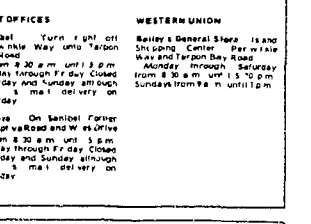 T OFFICES
Turn right off
winkle Way onto Tarpon
Road
8 30 a m until 5 p m
ay through Fr day Closed
day and Sunday although
s mail delivery on
day
On Sanibel Corner
ptiva Road and
m 8 30 a m until 5 p m
ay through Fr day Closed
day and Sunday although
s mail delivery on
day
WESTERN UNION
Bailey s General Store Island
Shopping Center Periwinkle
Way and Tarpon Bay Road
Monday through Saturday
from 8 30 a m until p m
Sundays from 9 a m until 1 p m